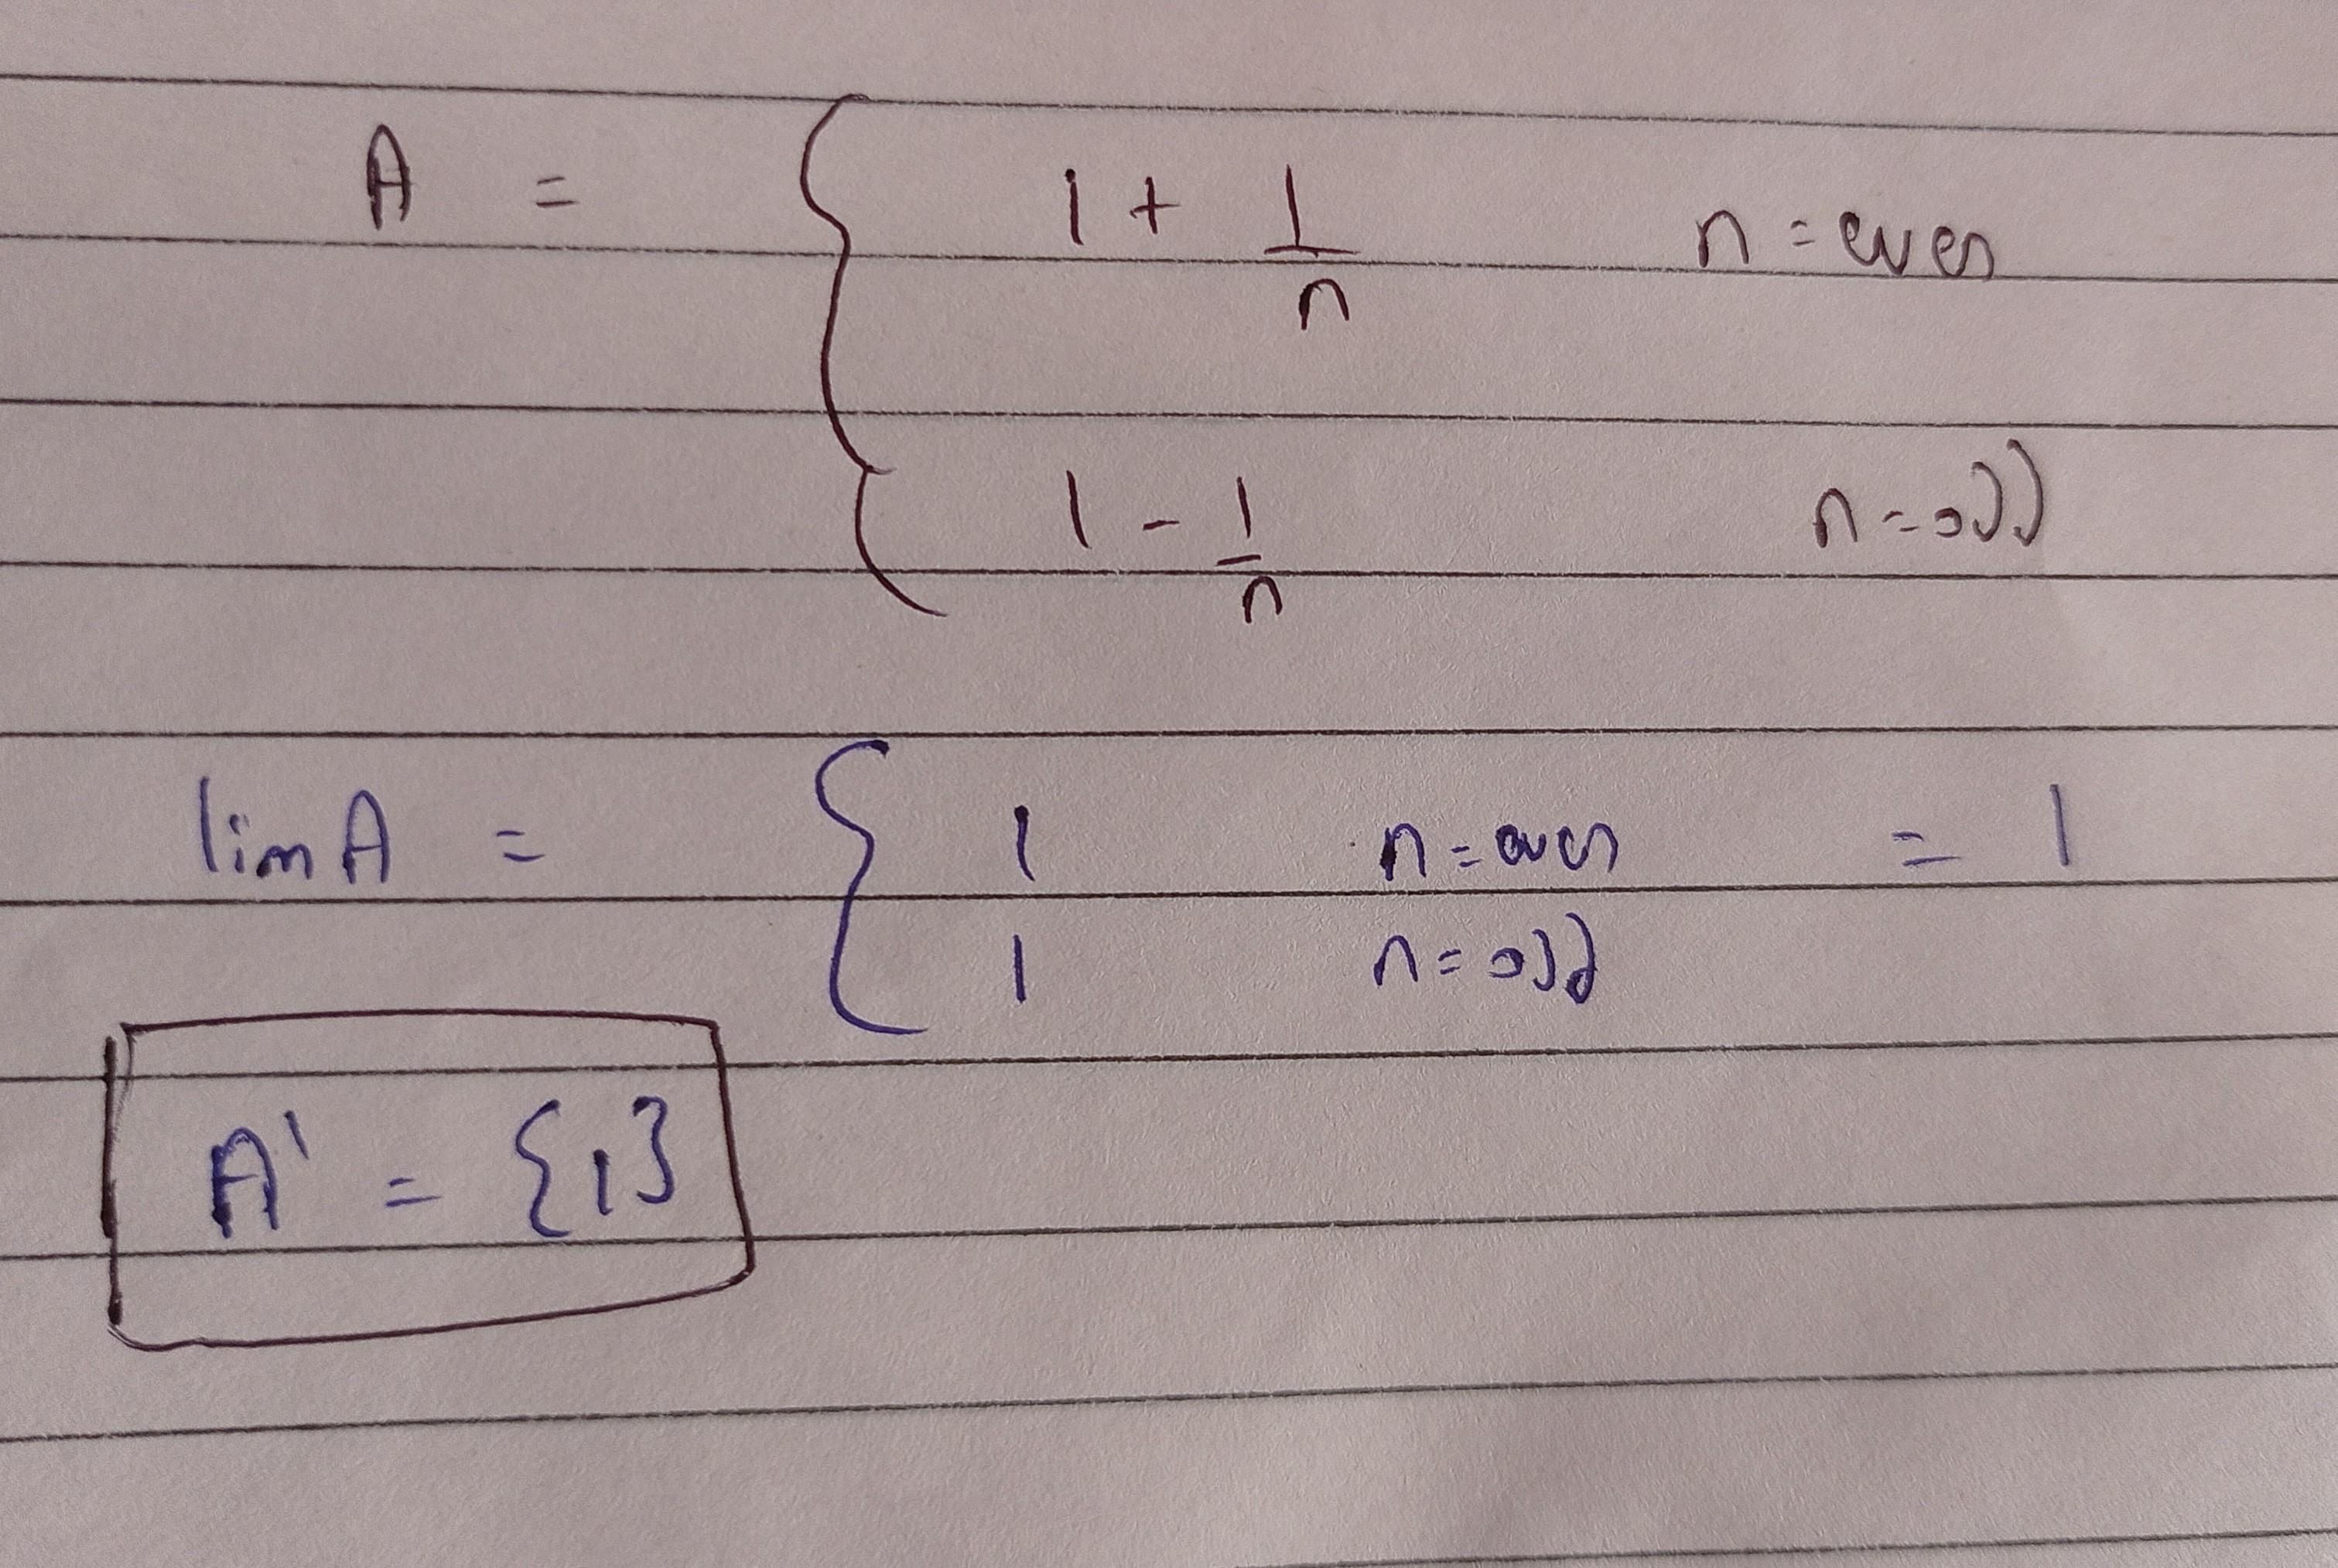 A = { 1 + 1/n n = even
1 - 1/n n = odd
lim A = { 1 n = even = 1
1 n = odd
A' = {1}